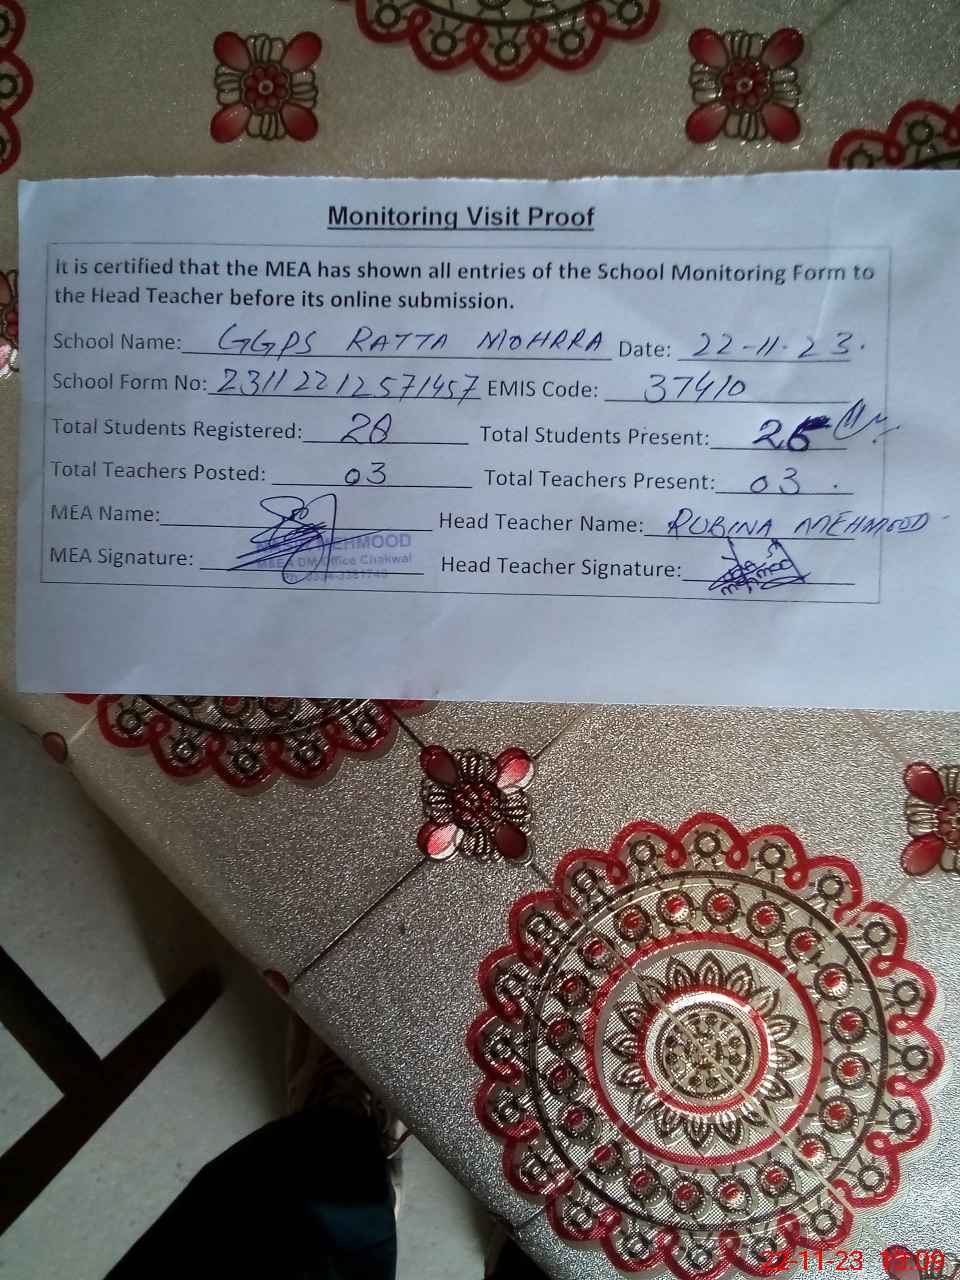 Monitoring Visit Proof
It is certified that the MEA has shown all entries of the School Monitoring Form to
the Head Teacher before its online submission.
School Name: GGPS RATTA MOHRRA Date: 22-11-23.
School Form No: 23112212571457 EMIS Code: 37410
Total Students Registered: 28 Total Students Present:
Total Teachers Posted: 03 Total Teachers Present: 03
MEA Name: Head Teacher Name: RUBINA MEHMOOD
MEHMOOD
MEA Signature: DM Office Chakwal Head Teacher Signature:
22-11-23 13:09